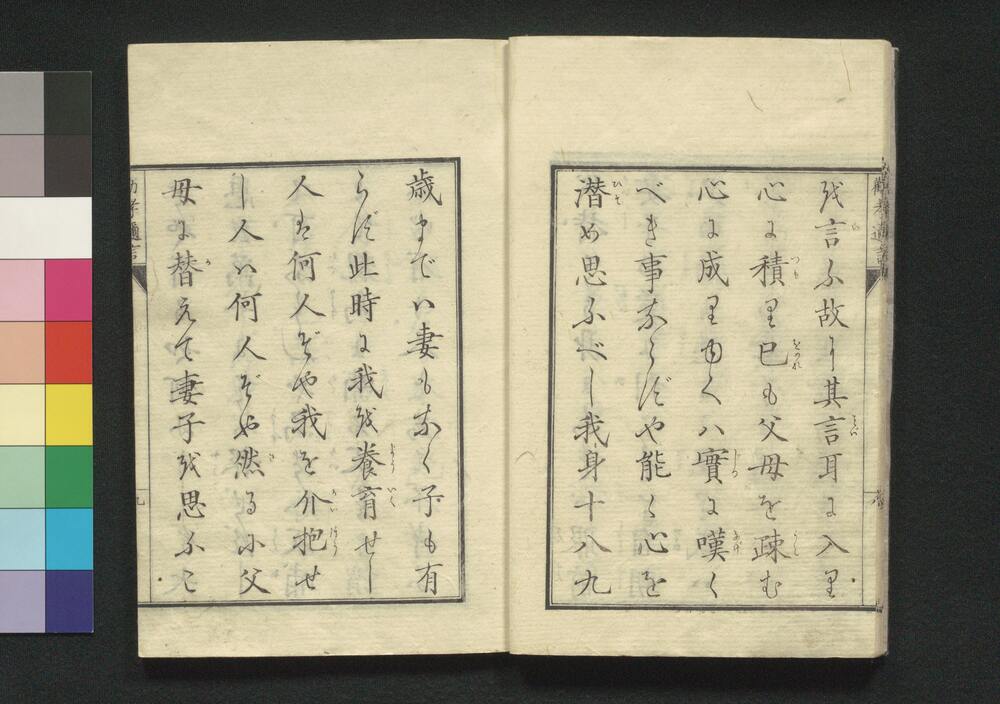 を言ふ故に其言耳に入り
心に積り已も父母を疎む
心に成りゆくハ實に嘆く
べき事ならずや能く心を
潜め思ふべし我身十八九
歳までハ妻もなく子も有
らず此時に我を養育せし
人は何人ぞや我を介抱せ
し人ハ何人ぞや然るに父
母に替えて妻子を思ふこ
勸孝邇言
九